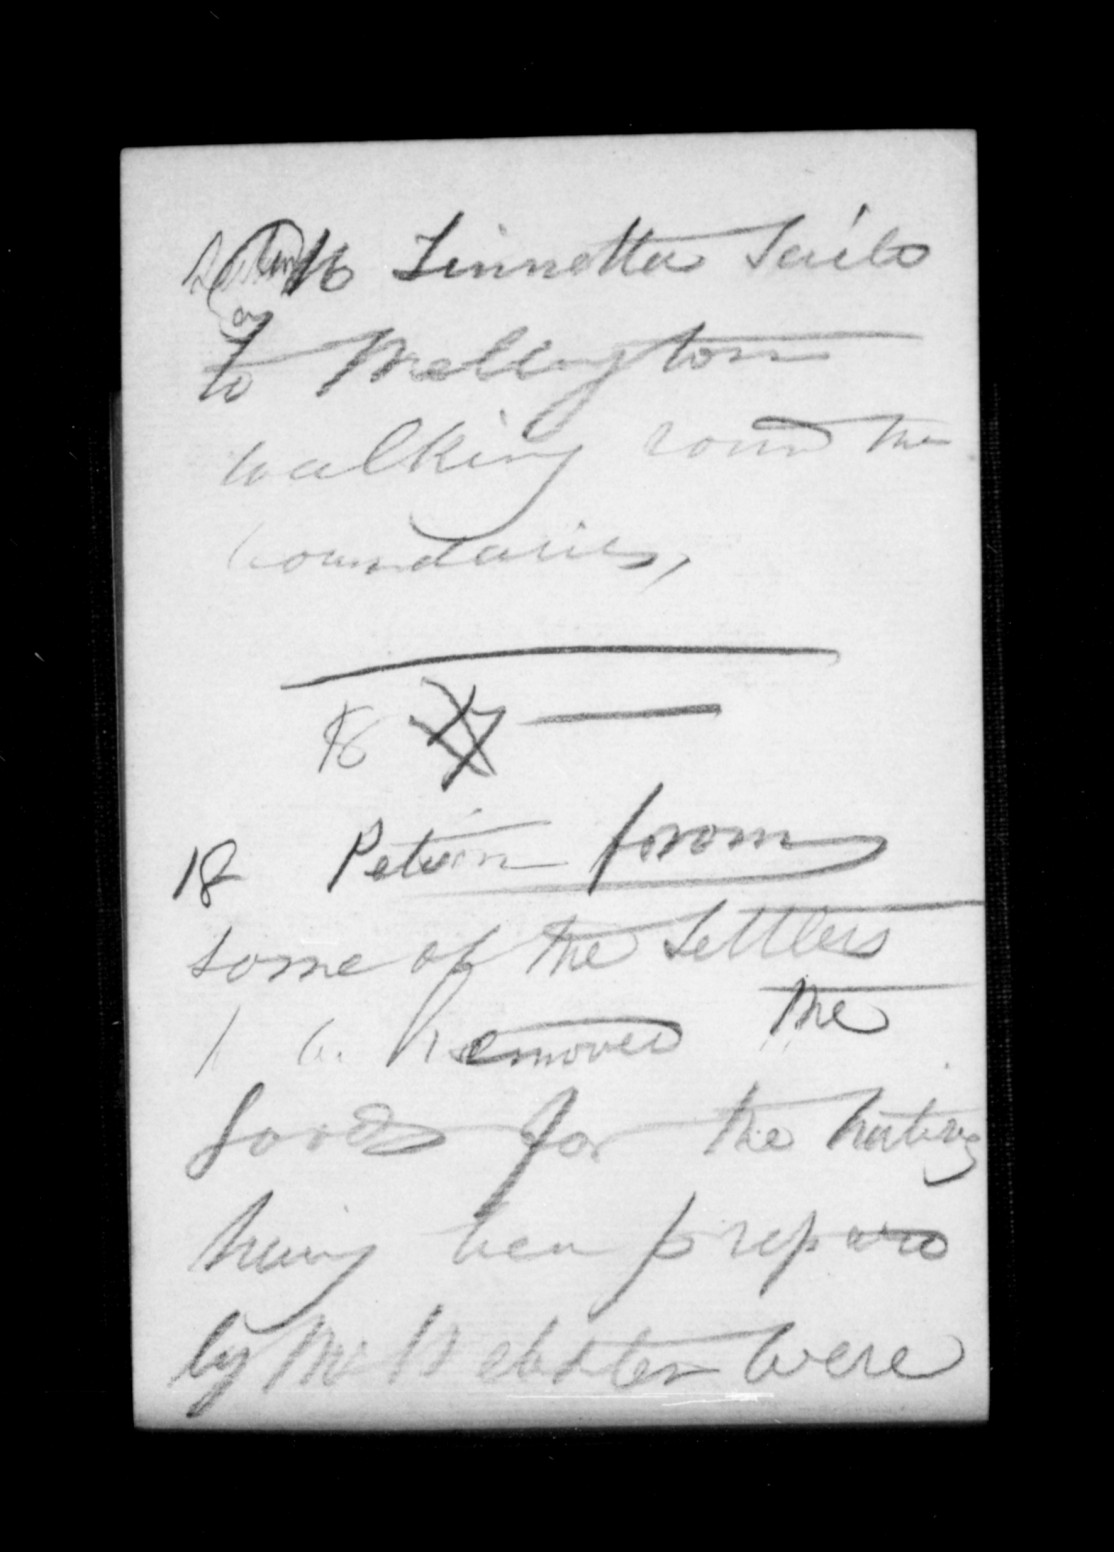 16 Linnetta Sails
to Wellington
walking round the
boundaries,
18
18 Petition from
some of the Settlers
to be Removed The
Goods for the Natives
having been prepared
by Mr Webster were